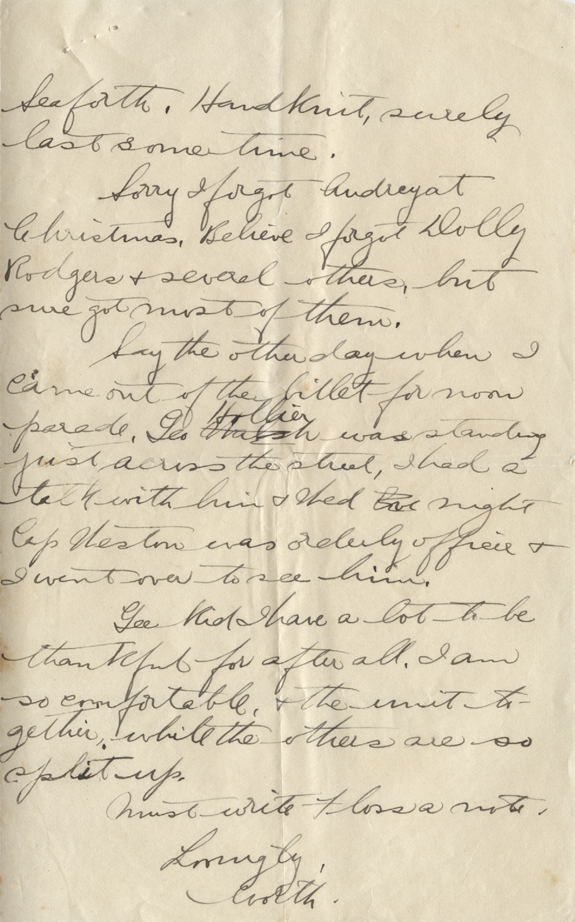 Seaforth. Hand Knit, surely
last some time.
Sorry I forgot Audrey at
Christmas. Believe I forgot Dolly
Rodgers & several others, but
sure got most of them.
Say the other day when I
came out of the billet for noon
Hollier
parade. Geo was standing
just across the street, I had a
talk with him & Wed night
Cap Weston was orderly officer &
I went over to see him.
Gee Kid I have a lot to be
thankful for after all. I am
so comfortable, & the unit to-
gether, while the others are so
split up.
Must write Floss a note.
Lovingly,
Worth.